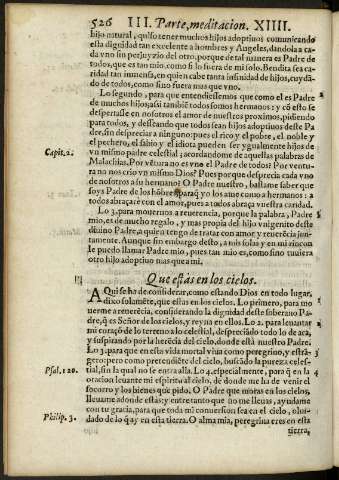 526 III. Parte, meditacion. XIIII.
hijo natural, quiso tener muchos hijos adoptiuos comunicando
esta dignidad tan excelente a hombres y Angeles, dandola a ca-
da vno sin perjuyzio del otro, porque de tal manera es Padre de
todos, que es tan mio, como si lo fuera de mi solo. Bendita sea ca-
ridad tan inmensa, en quien cabe tanta infinidad de hijos, cuydã-
do de todos, como sino fuera mas que vno.
Lo segundo, para que entendiessemos que como el es Padre
de muchos hijos: assi tambiẽ todos somos hermanos: y cõ esto se
despertasse en nosotros el amor de nuestros proximos, pidiendo
para todos, y desseando que todos sean hijos adoptiuos deste Pa
dre, sin despreciar a ninguno: pues el rico y el pobre, el noble y
el pechero, el sabio y el idiota pueden ser ygualmente hijos de
Capit. 2. vn mismo padre celestial; acordandome de aquellas palabras de
Malachias, Por vẽtura no es vno el Padre de todos? Por ventu-
ra no nos crio vn mismo Dios? Pues porque desprecia cada vno
de nosotros a su hermano? O Padre nuestro, bastame saber que
soys Padre de los hõbres, paraq̃ yo los ame como a hermanos: a
todos abraçarè con el amor, pues a todos abraça vuestra caridad.
Lo 3. para mouernos a reuerencia, porque la palabra, Padre
mio, es de mucho regalo, y mas propia del hijo vnigenito deste
diuino Padre, a quien tengo de tratar con amor y reuerẽcia jun-
tamente. Aunque sin embargo desto, a mis solas y en mi rincon
le puedo llamar Padre mio, pues tan mio es, como sino tuuiera
otro hijo adoptiuo mas que a mi.
Que estas en los cielos.
AQui se ha de considerar, como estando Dios en todo lugar,
dixo solamẽte, que estas en los cielos. Lo primero, para mo
uerme a reuerẽcia, considerando la dignidad deste soberano Pa-
dre, q̃ es Señor de los cielos, y reyna en ellos. Lo 2. para leuantar
mi coraçõ de lo terreno a lo celestial, despreciãdo todo lo de acà,
y suspirando por la herẽcia del cielo, donde està nuestro Padre.
Lo 3. para que en esta vida mortal viua como peregrino, y estrã-
gero: pero como pretendiẽte del cielo, buscãdo la pureza celes-
Psal. 120. tial, sin la qual no se entra alla. Lo 4. especialmente, para q̃ en la
oracion leuante mi espiritu al cielo, de donde me ha de venir el
socorro y los bienes que pido. O Padre que moras en los cielos,
lleuame adonde estàs; y entretanto que no me lleuas, ayudame
con tu gracia, para que toda mi conuersion sea en el cielo, olui-
Philip. 3. dado de lo q̃ ay en esta tierra. O alma mia, peregrina eres en esta
tierra,